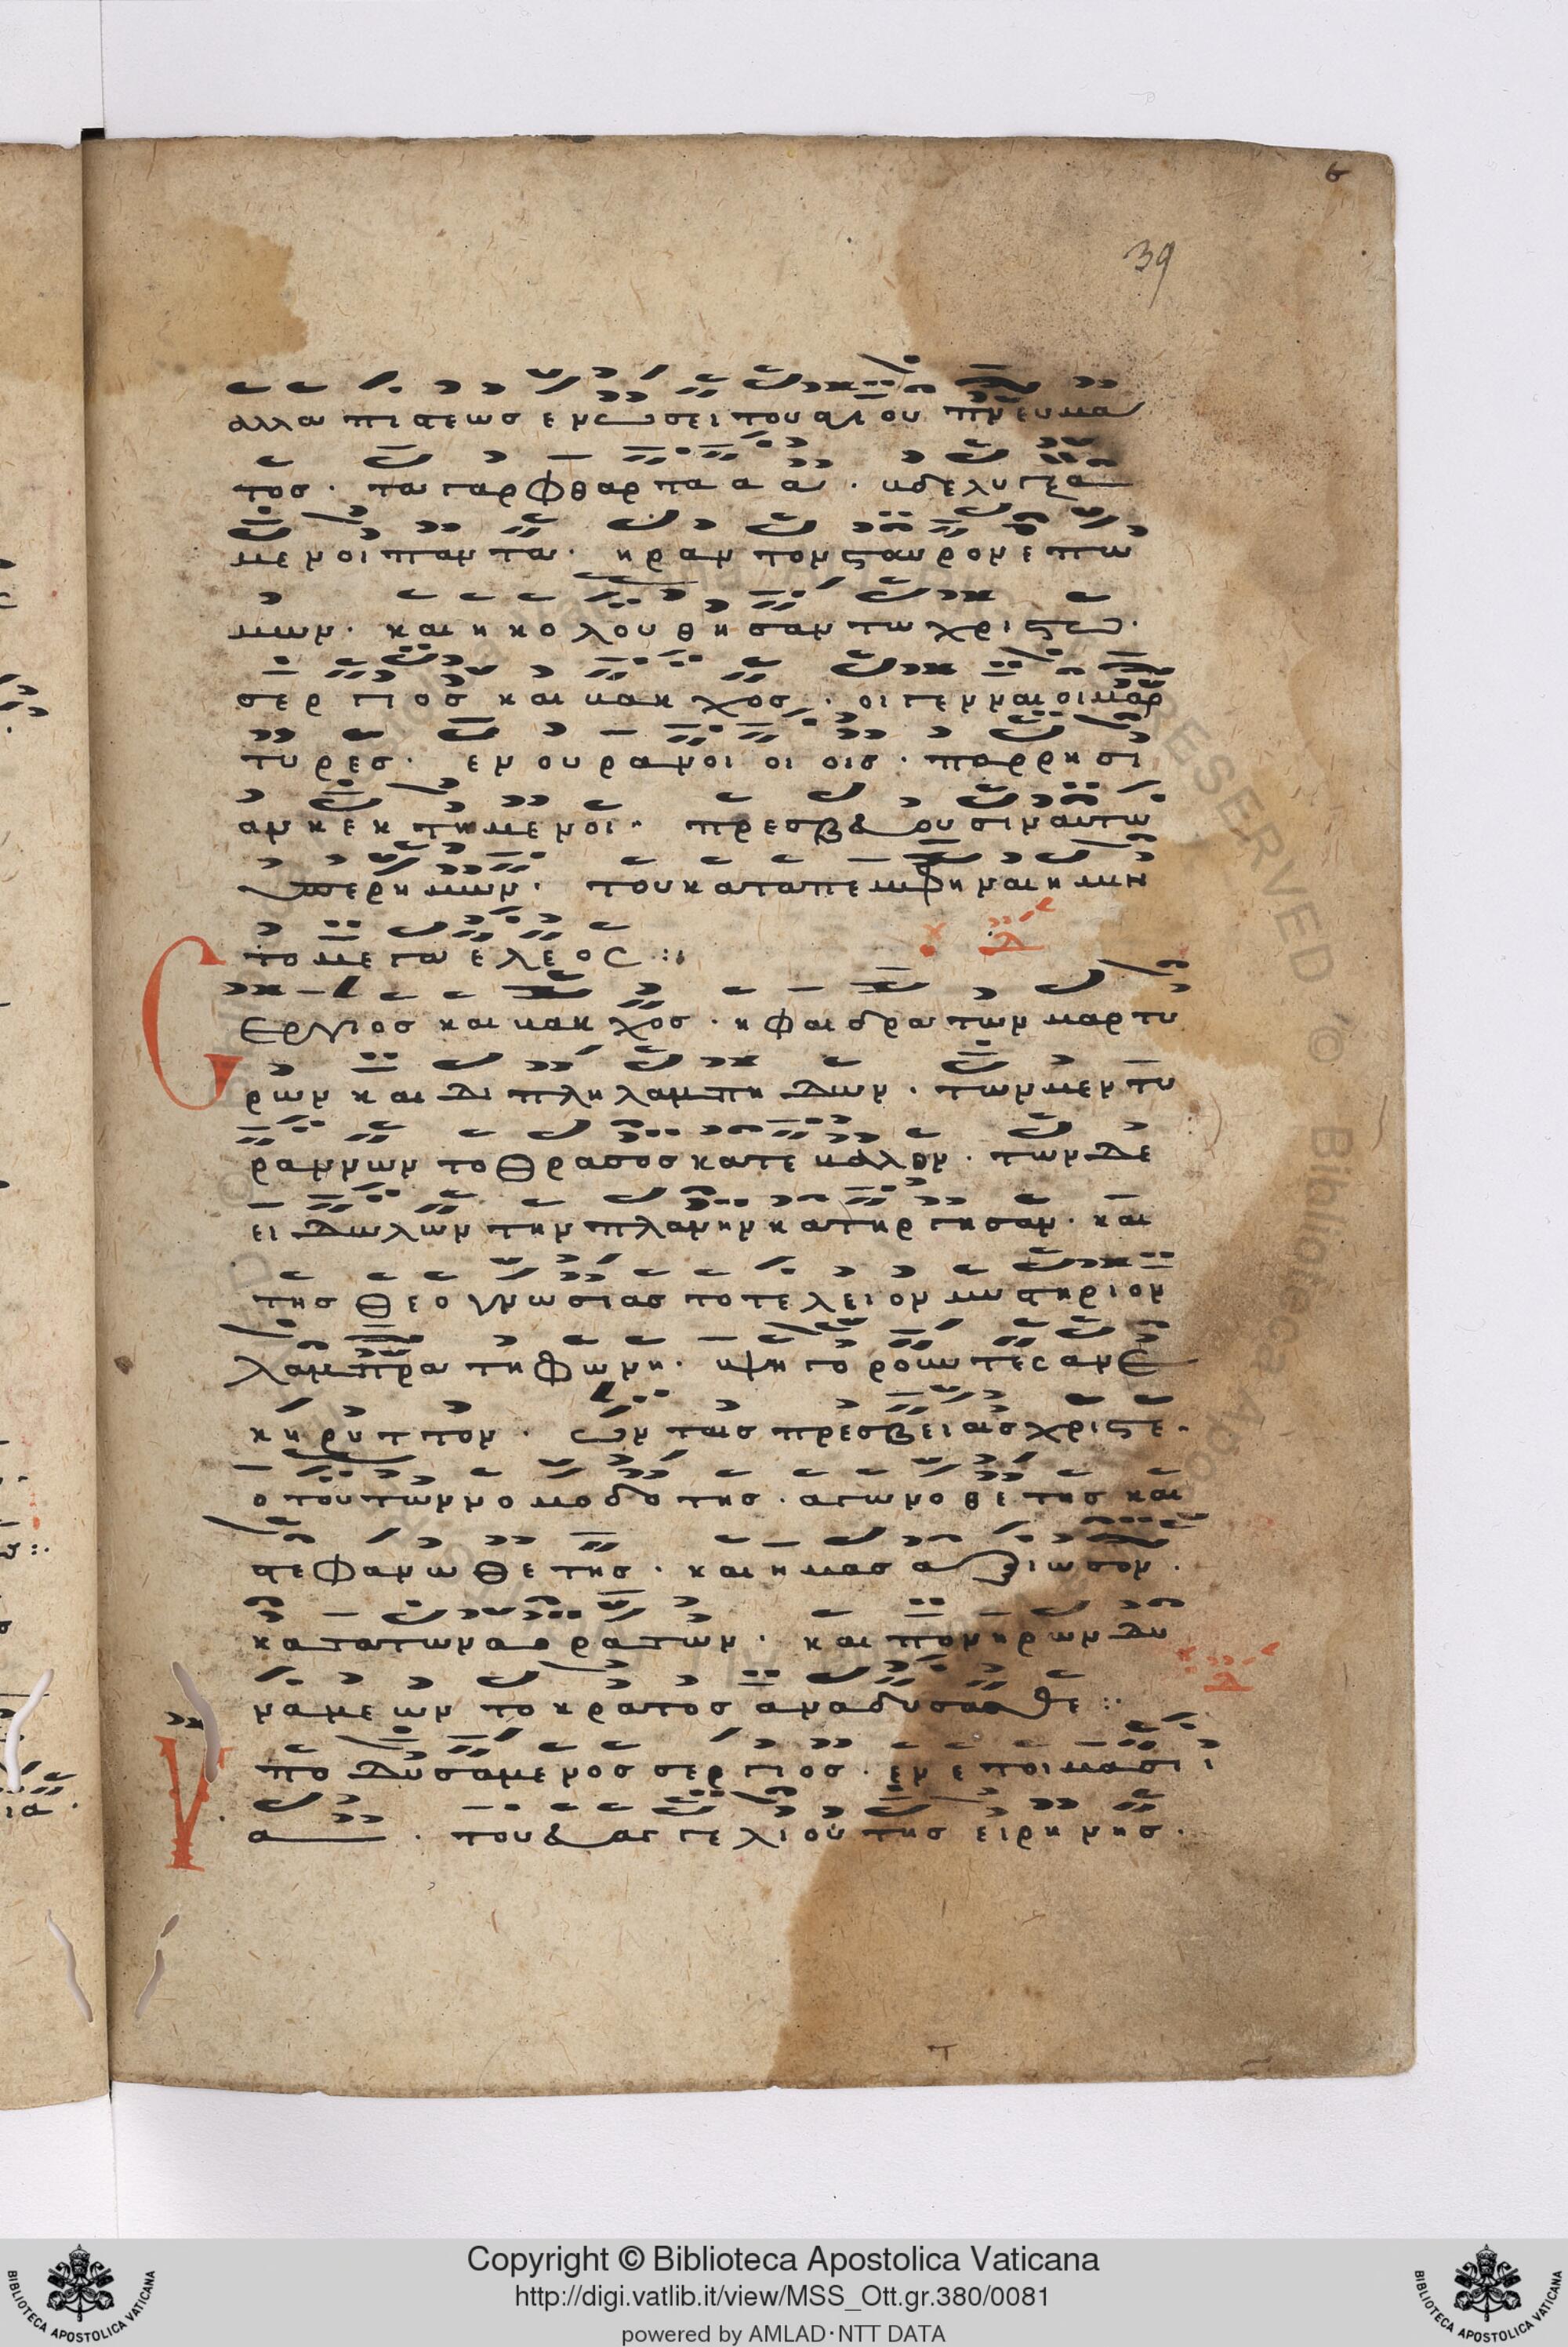 39
αλλα πιστεως ενωσει του αγιου πνευμα
τος · τα γαρ φθαρτα α α · βδελυξα
μενοι παντα · ηραν τον σταυρον επ ω
μων · και ηκολουθησαν τω χριστω ·
σεργιος και βακχος · οι γενναιοι μαρ
τυρες · εν ουρανοι οι οις · παρρησι
αν κεκτημενοι · πρεσβευουσιν αυτω
υπερ ημων · του καταπεμφθηναι ημιν
το μεγα ελεος :
Σεργιος και βακχος · η φαιδρα των μαρτυ
ρων και διπλη λαμπηδων · των μεν τυ
ραννων το θρασος κατεβαλον · των δε
ειδωλων την πλανην κατηργησαν · και
της θεογνωσιας το τελειον μυστηριον
λαμπρα τη φωνη · ρητορευοντες αν
εκηρυττον · ων ταις πρεσβειαις χριστε ·
ο τουτων νομοδοτης · αγωνοθετης και
στεφανωθετης · και ημας αξιωσον ·
κατα των αορατων · και πονηρων δυ
ναμεων το κρατος αναδυσασθε :
Υποδυσαμενος σεργιος · εν ετοιμασι ι
α · του ευαγγελιου της ειρηνης ·
Copyright © Biblioteca Apostolica Vaticana
http://digi.vatlib.it/view/MSS_Ott.gr.380/0081
powered by AMLAD·NTT DATA
BIBLIOTECA APOSTOLICA VATICANA
BIBLIOTECA APOSTOLICA VATICANA